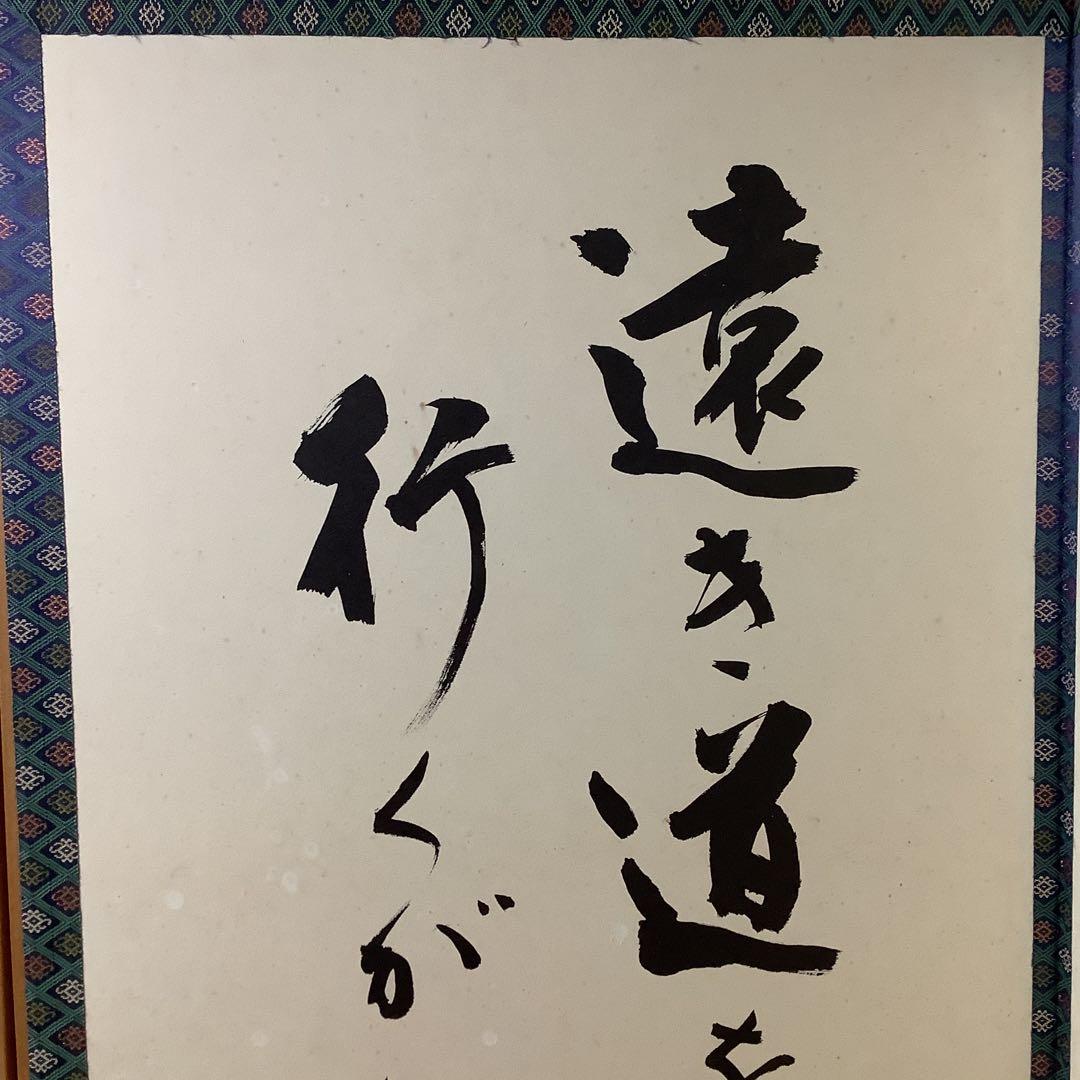 遠き道を
行くが